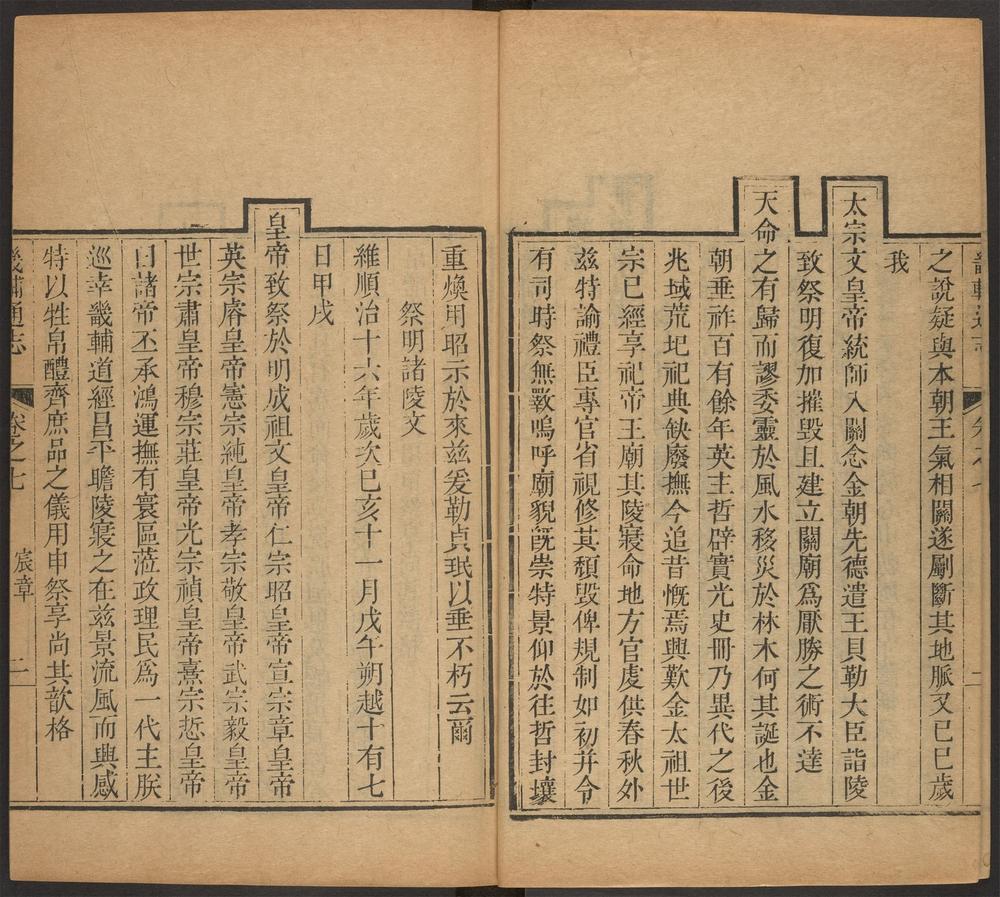 之說疑與本朝王氣相關遂劚斷其地脈又己巳歲
我
太宗文皇帝統師入關念金朝先德遣王貝勒大臣詣陵
致祭明復加摧毀且建立關廟爲厭勝之術不達
天命之有歸而謬委靈於風水移災於林木何其誕也金
朝垂祚百有餘年英主哲辟實光史冊乃異代之後
兆域荒圮祀典缺廢撫今追昔慨焉興歎金太祖世
宗已經享祀帝王廟其陵寢命地方官虔供春秋外
兹特諭禮臣專官省視修其頹毀俾規制如初并令
有司時祭無斁嗚呼廟貌旣崇特景仰於往哲封壤
重煥用昭示於來兹爰勒貞珉以垂不朽云爾
祭明諸陵文
維順治十六年歲次己亥十一月戊午朔越十有七
日甲戌
皇帝致祭於明成祖文皇帝仁宗昭皇帝宣宗章皇帝
英宗睿皇帝憲宗純皇帝孝宗敬皇帝武宗毅皇帝
世宗肅皇帝穆宗莊皇帝光宗禎皇帝熹宗悊皇帝
曰諸帝丕承鴻運撫有寰區蒞政理民爲一代主朕
巡幸畿輔道經昌平瞻陵寢之在兹景流風而興感
特以牲帛醴齊庶品之儀用申祭享尚其歆格
畿輔通志 卷之七 宸章 二